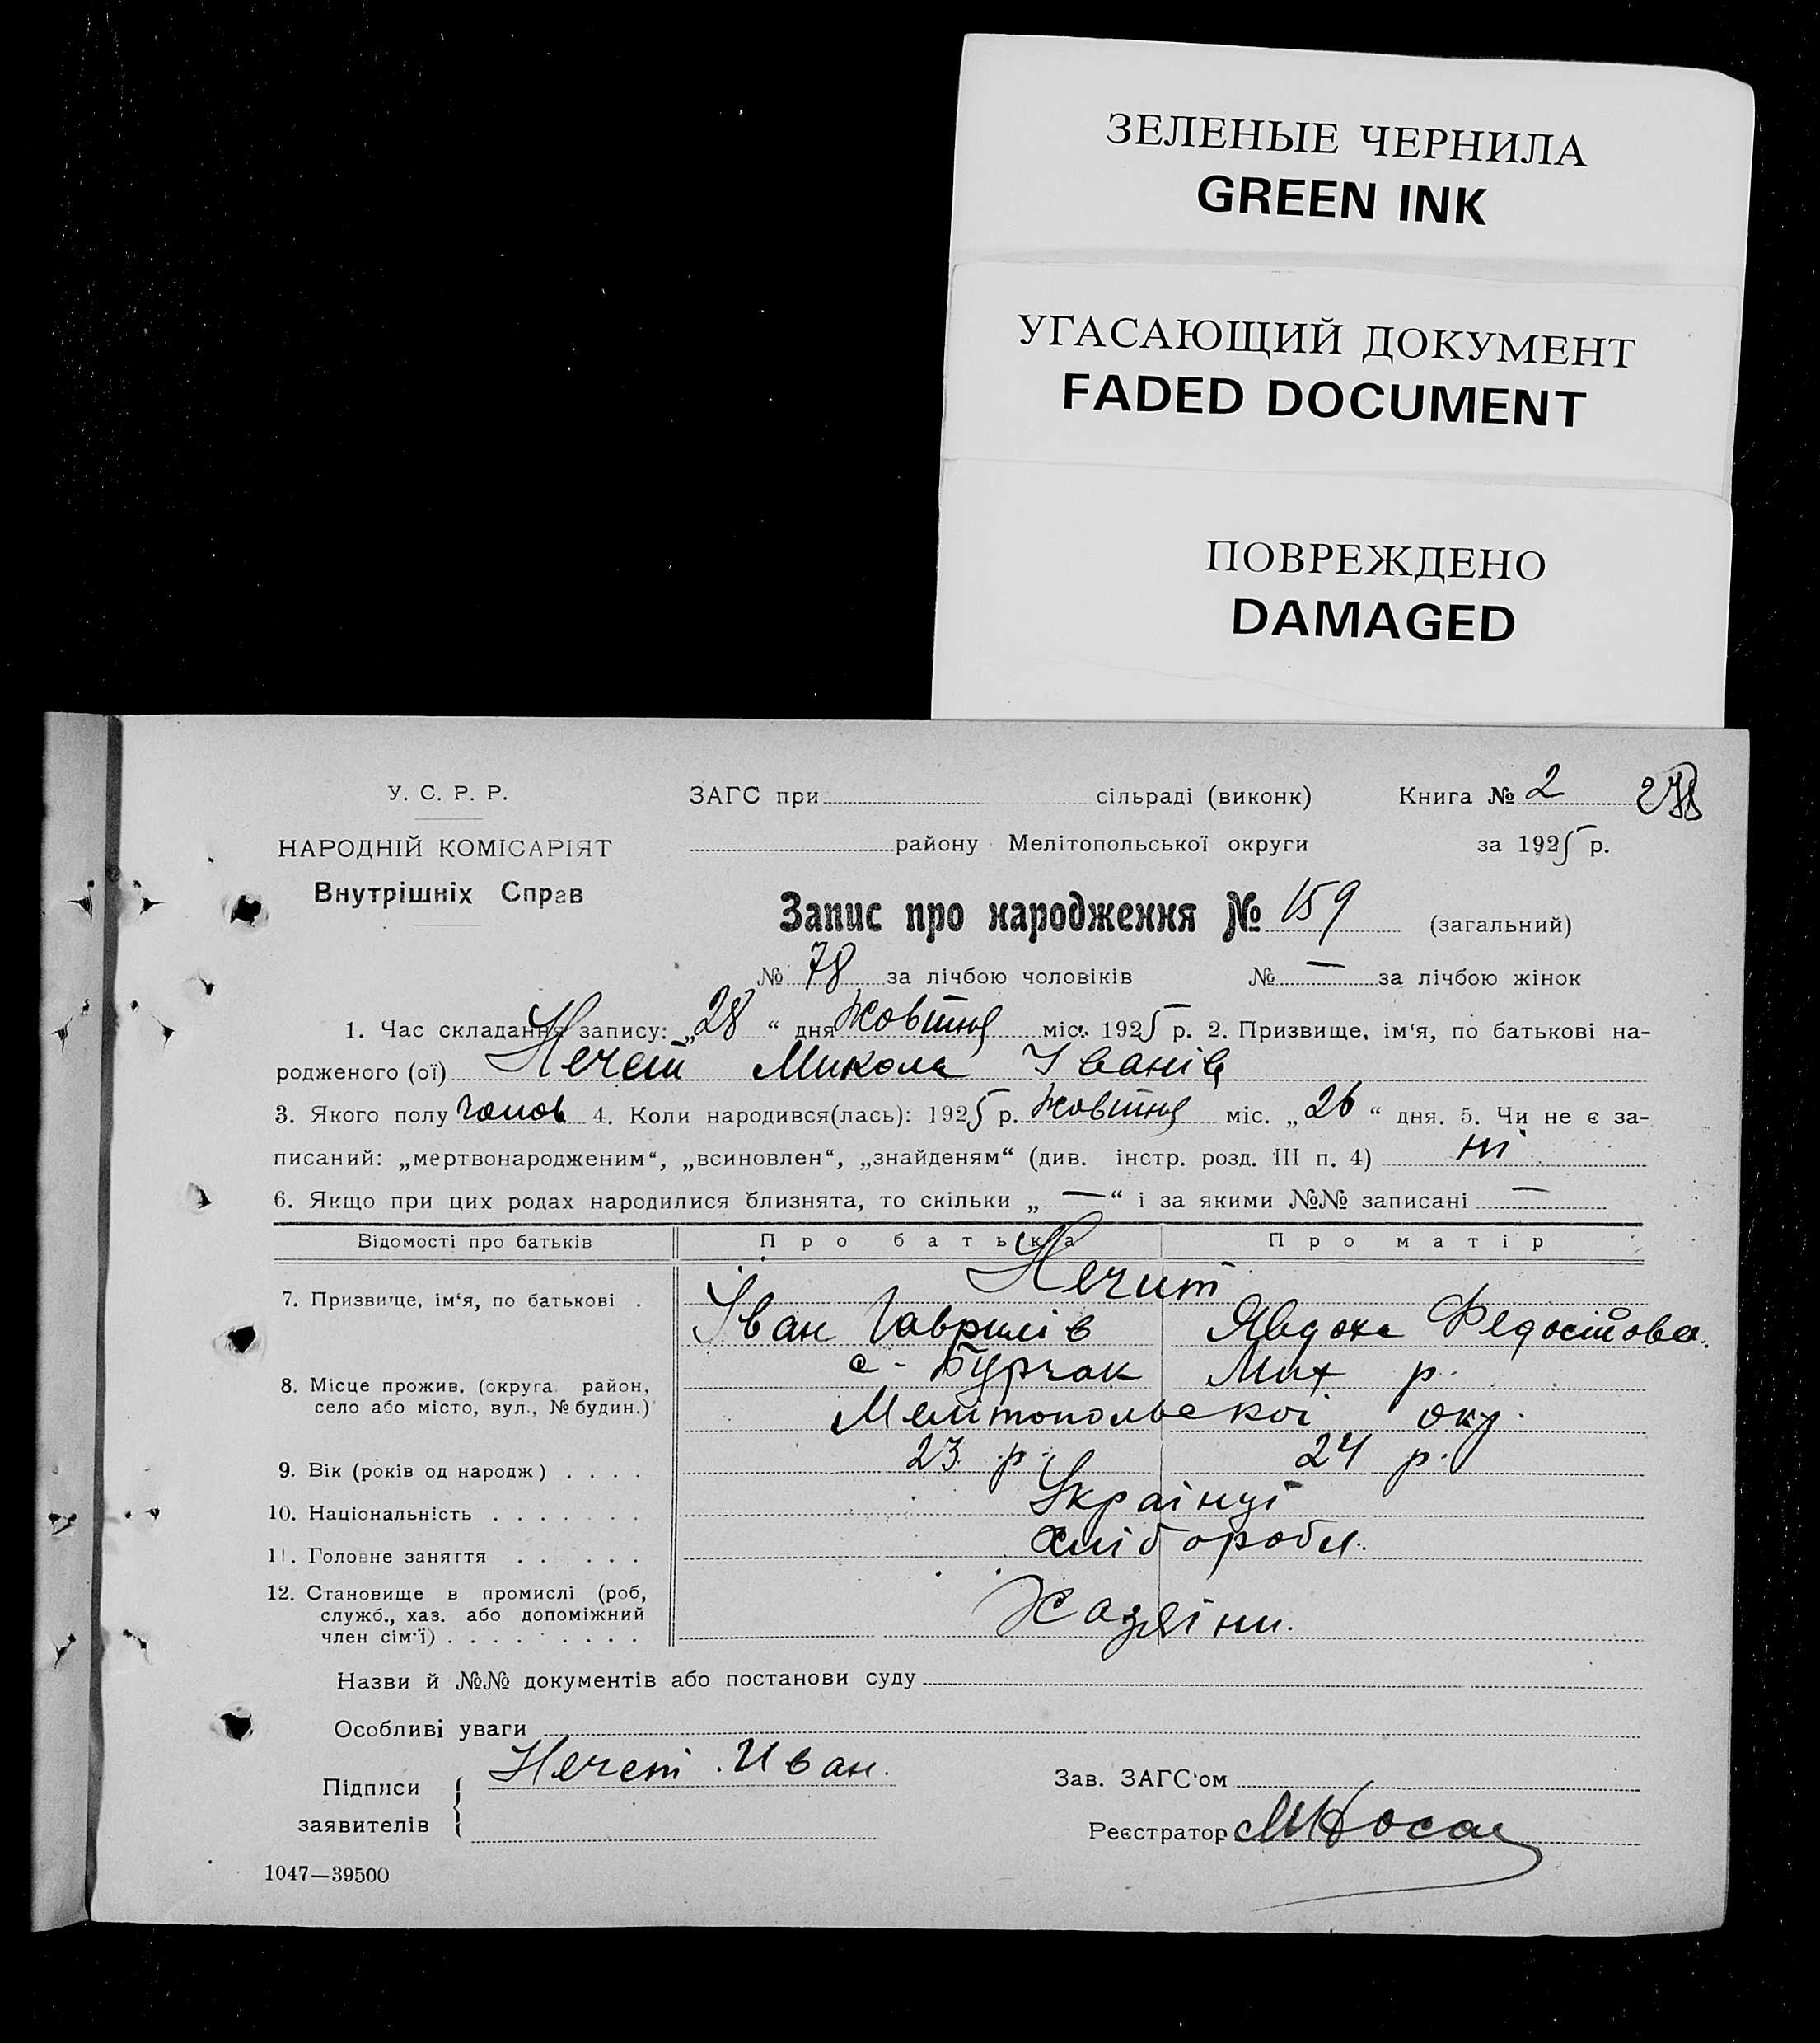 ЗЕЛЕНЫЕ ЧЕРНИЛА
GREEN INK
УГАСАЮЩИЙ ДОКУМЕНТ
FADED DOCUMENT
ПОВРЕЖДЕНО
DAMAGED
У. С. Р. Р.
НАРОДНІЙ КОМІСАРІЯТ
Внутрішніх Справ
ЗАГС при сільраді (виконк) Книга № 2
району Мелітопольської округи за 1925 р.
Запис про народження № 159 (загальний)
№ 78 за лічбою чоловіків № — за лічбою жінок
1. Час складання запису: „28“ дня жовтня міс. 1925 р. 2. Призвище, ім‘я, по батькові на-
родженого (ої) Микола Іванів
3. Якого полу чолов 4. Коли народився(лась): 1925 р. жовтня міс. „26“ дня. 5. Чи не є за-
писаний: „мертвонародженим“, „всиновлен“, „знайденям“ (див. інстр. розд. III п. 4) ні
6. Якщо при цих родах народилися близнята, то скільки „—“ і за якими №№ записані —
Відомості про батьків Про батька Про матір
Нечит
7. Призвище, ім‘я, по батькові .
Іван Гаврилів Явдоха
8. Місце прожив. (округа район,
село або місто, вул., № будин.)
с. Бурчак Мих р.
Мелітопольської окр.
9. Вік (років од народж) . . . . 23 р. 24 р.
10. Національність . . . . . . . Українці
11. Головне заняття . . . . . хлібороби.
12. Становище в промислі (роб,
служб., хаз. або допоміжний
член сім‘ї) . . . . . . . . . Хазяїни.
Назви й №№ документів або постанови суду
Особливі уваги
Підписи
заявителів
Иван.
Зав. ЗАГС‘ом
Реєстратор
1047—39500